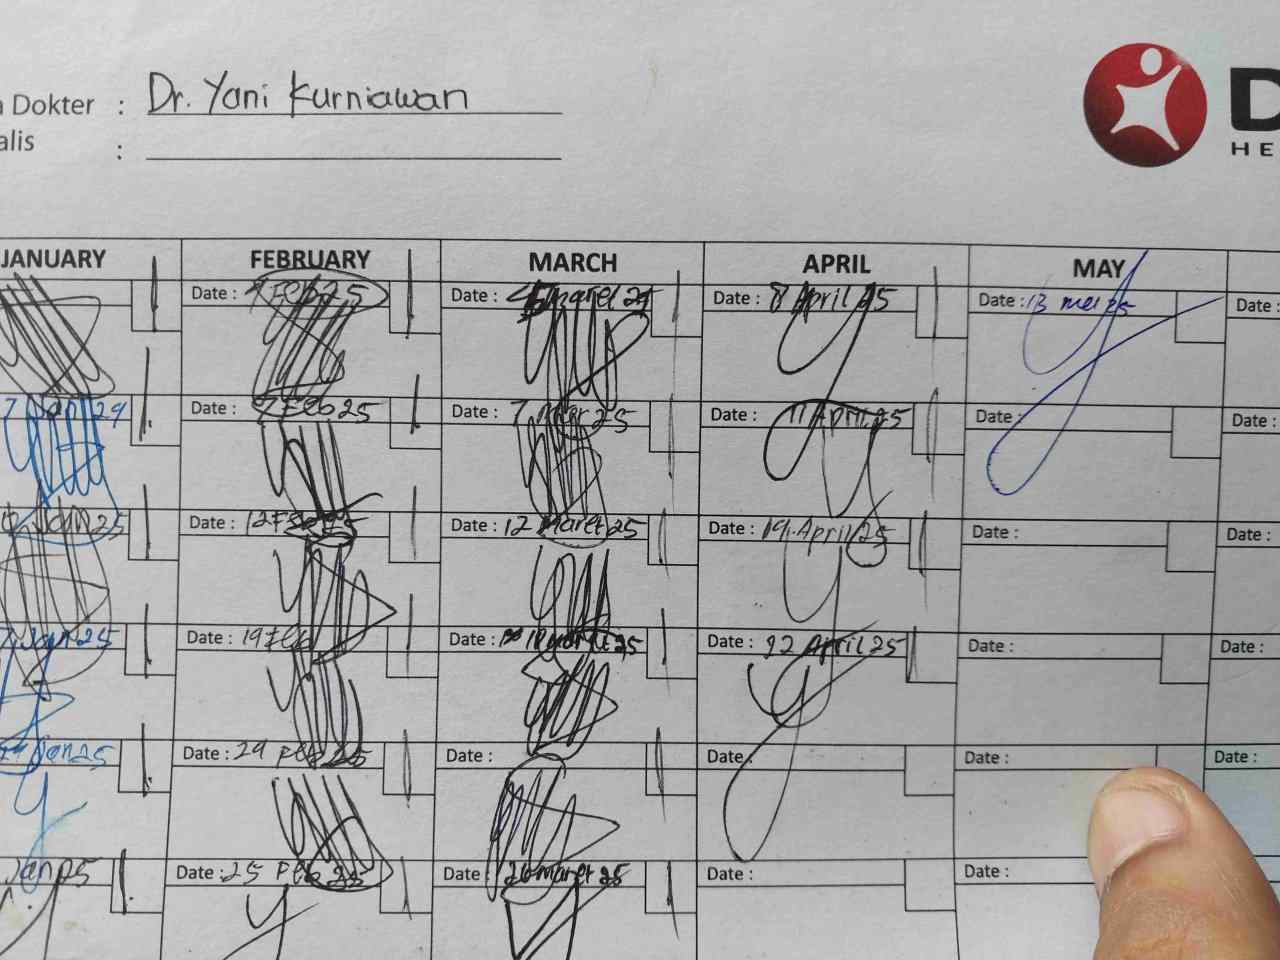 a Dokter : Dr. Yani Kurniawan
alis :
D
HE
JANUARY FEBRUARY MARCH APRIL MAY
Date : 25 Date : maret Date : 8 April 25 Date : 13 mei 25 Date :
7 Jan Date : Feb 25 Date : 7 Mar 25 Date : 11 April 25 Date : Date :
Jan 25 Date : 12 Feb Date : 12 Maret 25 Date : 19 April 25 Date : Date :
7 Jan 25 Date : 19 Feb Date : 18 25 Date : 22 April 25 Date : Date :
Jan 25 Date : 24 Feb 25 Date : Date : Date : Date :
Jan 25 Date : 25 Feb 25 Date : 26 maret 25 Date : Date :